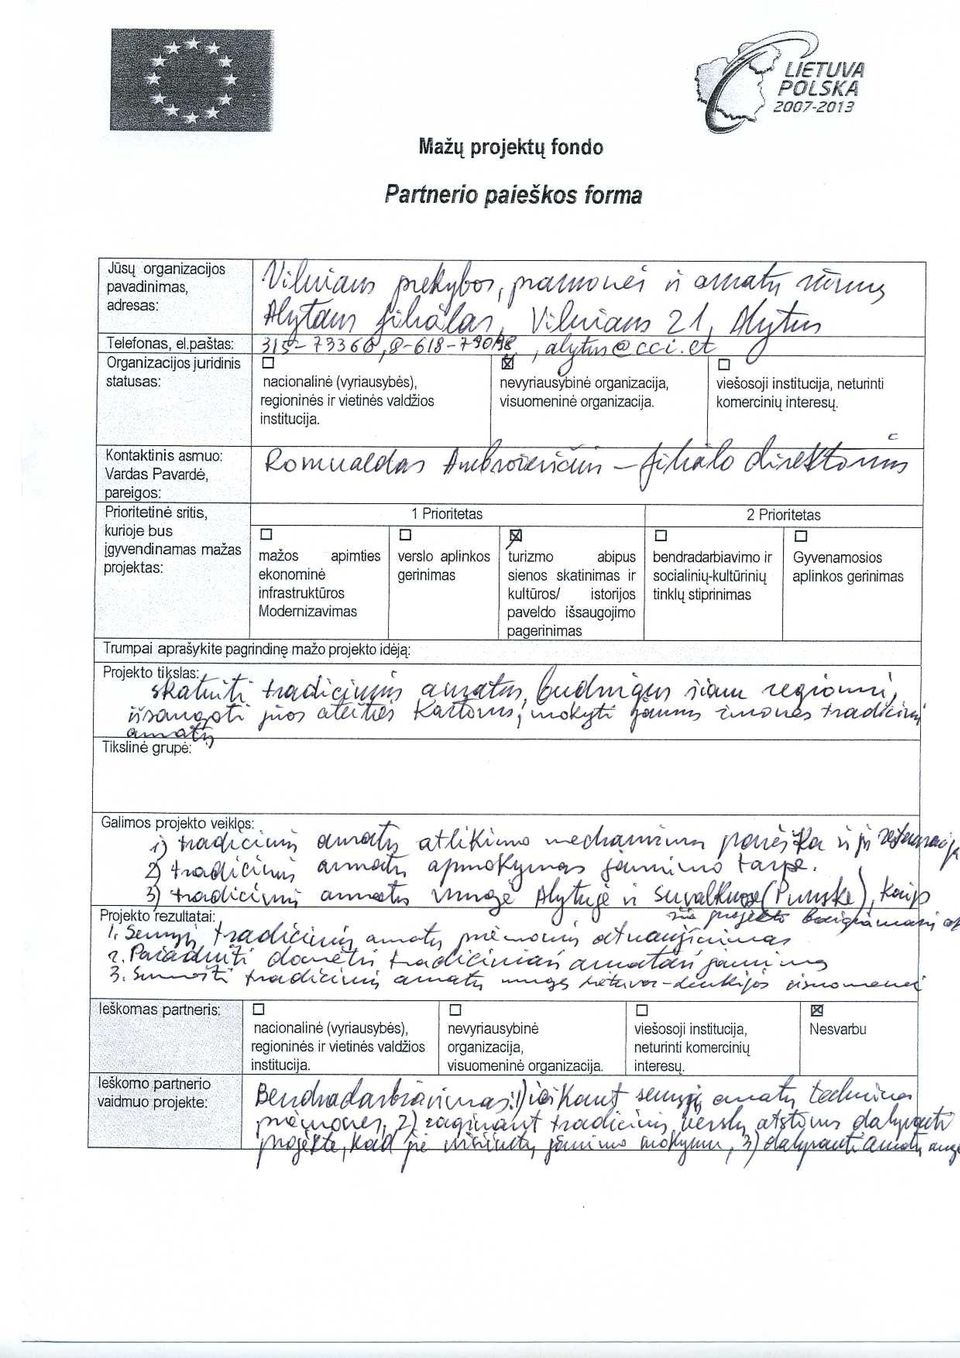 LIETUVA
POLSKA
2007-2013
Mažų projektų fondo
Partnerio paieškos forma
Jūsų organizacijos
pavadinimas,
adresas:
Vilniaus prekybos, pramonės ir amatų rūmų
Alytaus filialas, Vilniaus 21, Alytus
Telefonas, el.paštas:
315-73366, 8-618-79098, alytus@cci.
Organizacijos juridinis
statusas:
nacionalinė (vyriausybės),
regioninės ir vietinės valdžios
institucija.
nevyriausybinė organizacija,
visuomeninė organizacija.
viešosoji institucija, neturinti
komercinių interesų.
Kontaktinis asmuo:
Vardas Pavardė,
pareigos:
Romualdas – filialo direktorius
Prioritetinė sritis,
kurioje bus
įgyvendinamas mažas
projektas:
1 Prioritetas
2 Prioritetas
mažos apimties
ekonominė
infrastruktūros
Modernizavimas
verslo aplinkos
gerinimas
turizmo abipus
sienos skatinimas ir
kultūros/ istorijos
paveldo išsaugojimo
pagerinimas
bendradarbiavimo ir
socialinių-kultūrinių
tinklų stiprinimas
Gyvenamosios
aplinkos gerinimas
Trumpai aprašykite pagrindinę mažo projekto idėją:
Projekto tikslas:
skatinti tradicinius amatus, būdingus šiam regionui,
išsaugoti juos ateities kartoms, mokyti jaunus žmones tradicinių
amatų
Tikslinė grupė:
Galimos projekto veiklos:
1) tradicinių amatų atlikimo mechanizmų paieška ir jų
2) tradicinių amatų apmokymas jaunimo tarpe.
3) tradicinių amatų mugė Alytuje ir Suvalkuose (Punske), kaip
šio projekto
Projekto rezultatai:
1. Senųjų tradicinių amatų priemonių atnaujinimas
2. Paskatinti domėtis tradiciniais amatais jaunimą
3. tradicinių amatų Lietuvos-Lenkijos visuomenei
Ieškomas partneris:
nacionalinė (vyriausybės),
regioninės ir vietinės valdžios
institucija.
nevyriausybinė
organizacija,
visuomeninė organizacija.
viešosoji institucija,
neturinti komercinių
interesų.
Nesvarbu
Ieškomo partnerio
vaidmuo projekte:
Bendradarbiavimas: 1) ieškant senųjų amatų technines
priemones, 2) raginant tradicinių verslų atstovus dalyvauti
projekte, kad jie jaunimo mokymu, 3) dalyvauti amatų